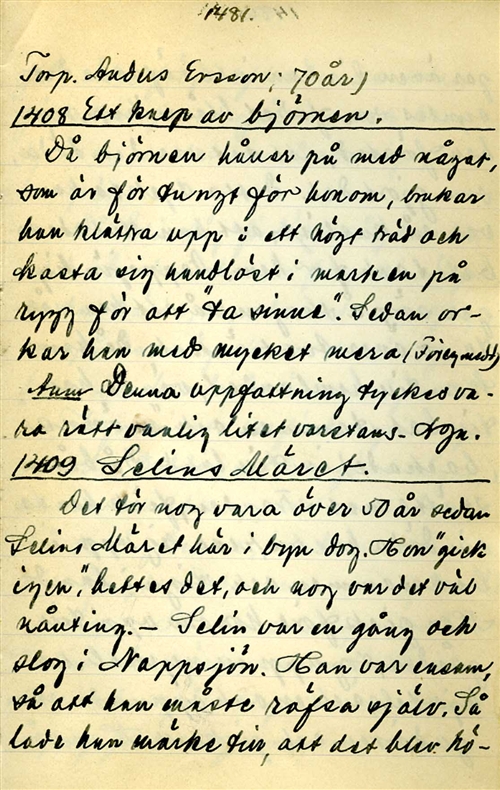 1481.
Torp. Anders Ersson; 70 år)
1408 Ett knep av björnen.
Då björnen håller på med något,
som är för tungt för honom, brukar
han klättra upp i ett högt träd och
kasta sig handlöst i marken på
rygg för att "ta sinne". Sedan or-
kar han med mycket mera (Föreg medd)
Anm Denna uppfattning tyckes va-
ra rätt vanlig litet varstans -
1409 Selins Märet.
Det tör nog vara över 50 år sedan
Selins Märet här i byn dog. Hon "gick
igen", hettes det, och nog var det väl
nånting. - Selin var en gång och
slog i Nappsjön. Han var ensam,
så att han måste räfsa själv. Så
lade han märke till, att det blev hö-